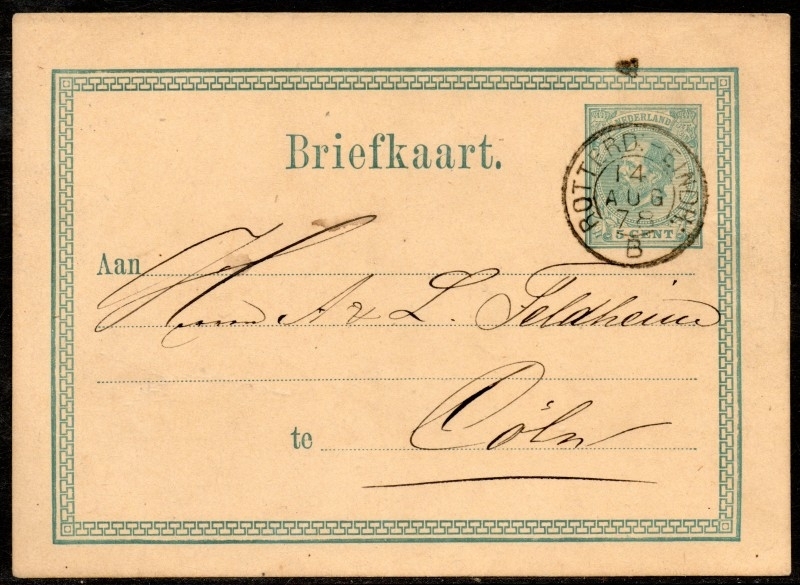 NEDERLAND
Briefkaart.
ROTTERD. EINDH.
14
AUG
78
B
5 CENT
Aan
Herrn A & L. Feldheim
te Cöln